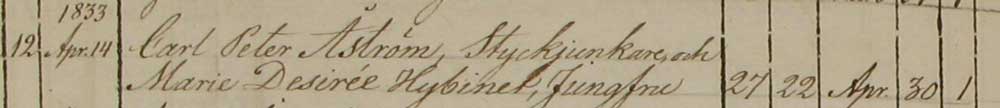 1833
12 Apr. 14 Carl Peter Åström, Styckjunkare, och
Marie Desirée Hybinet, Jungfru 27 22 Apr. 30 1